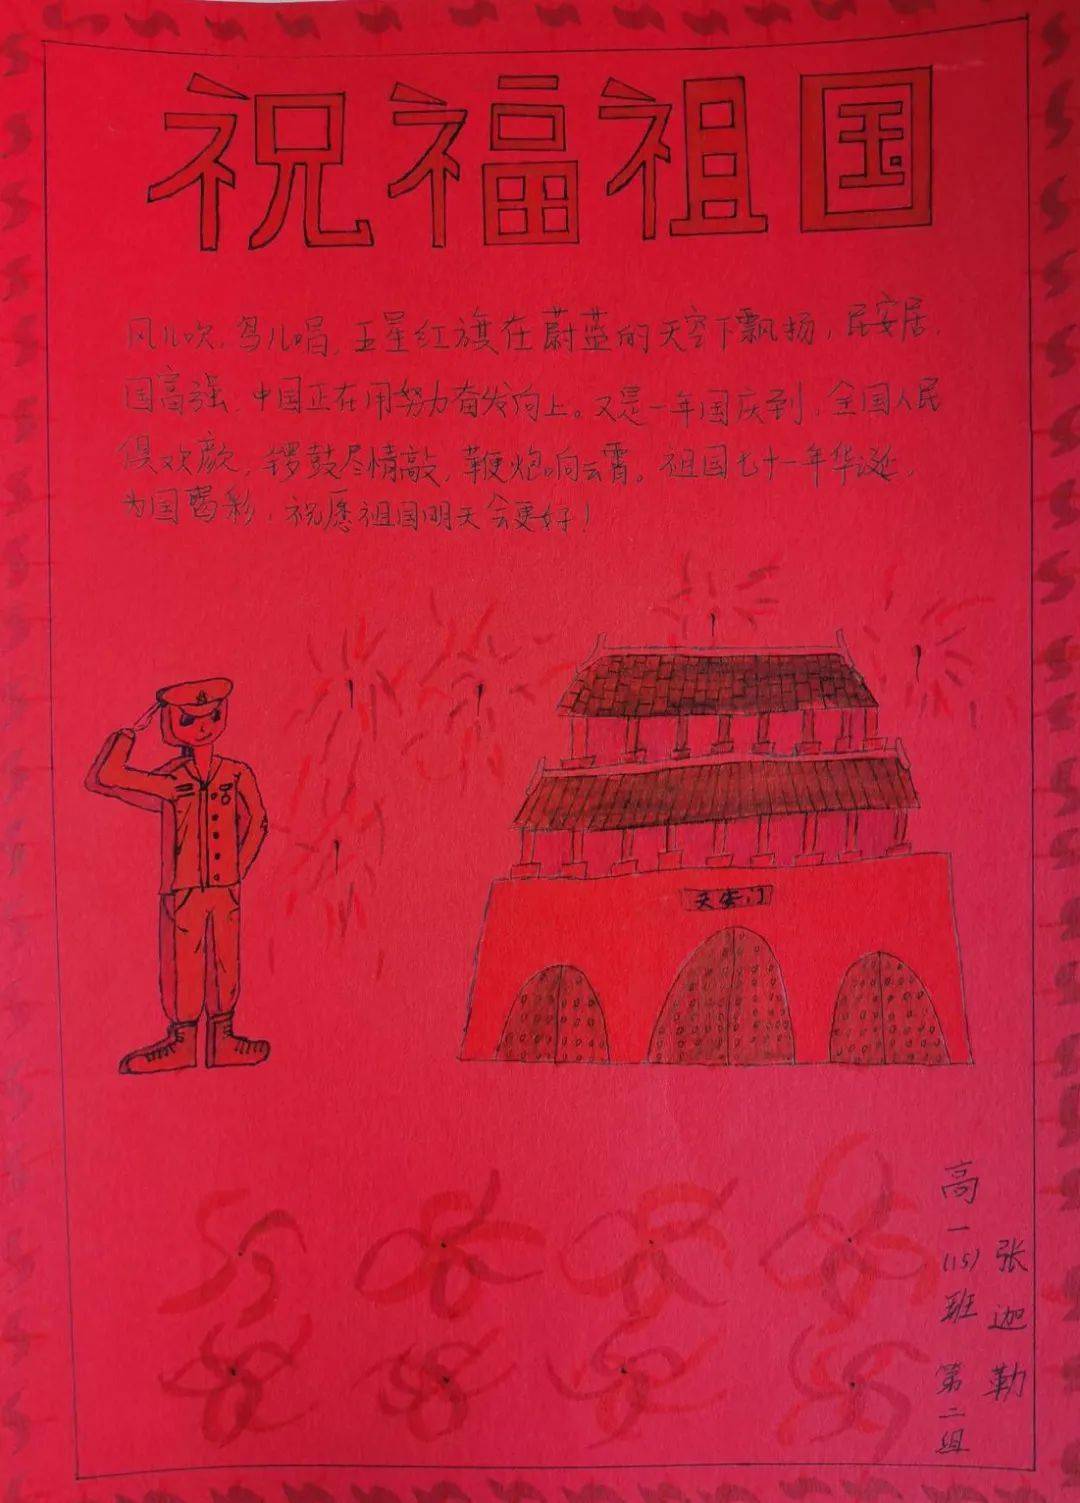 祝福祖国
风儿吹,鸟儿唱,五星红旗在蔚蓝的天空下飘扬,民安居,
国高强,中国正在用努力奋发向上。又是一年国庆到,全国人民
俱欢颜,锣鼓尽情敲,鞭炮响云霄。祖国七十一年华诞,
为国喝彩,祝愿祖国明天会更好!
天安门
高一(15)班 第二组
张迦勒